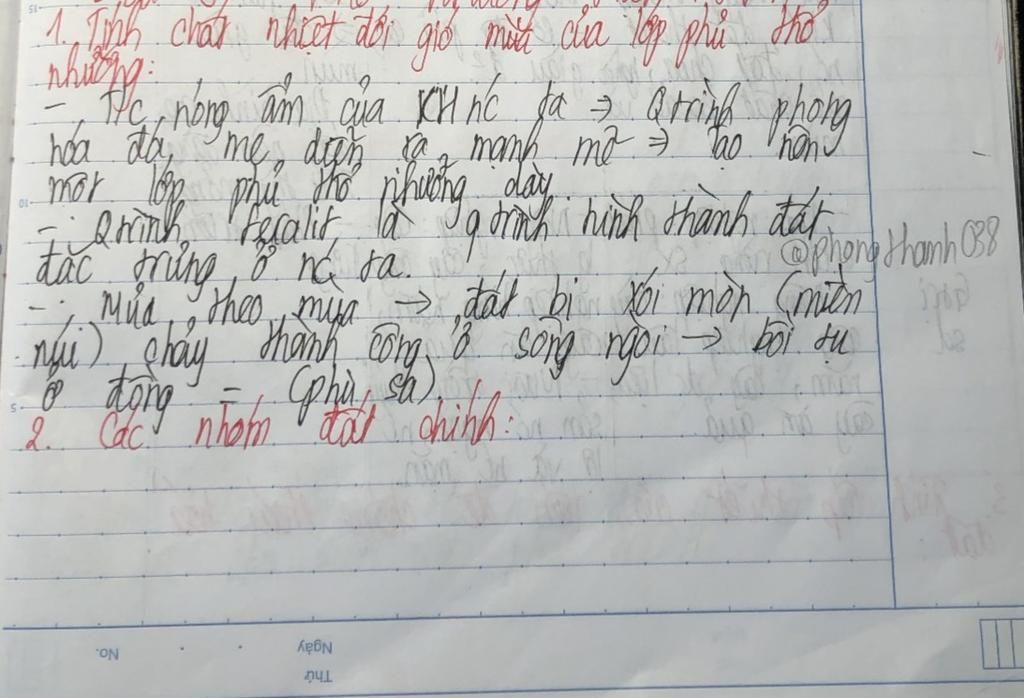 1. Tính chất nhiệt đới gió mùa của lớp phủ thổ
nhưỡng:
- T/c nóng ẩm của KH nc ta ⇒ Qtrình phong
hóa đá mẹ diễn ra mạnh mẽ ⇒ tạo nên
một lớp phủ thổ nhưỡng dày.
- Qtrình feralit là qtrình hình thành đất
đặc trưng ở nc ta.
@phongthanh038
- Mưa theo mùa → đất bị xói mòn (miền
núi) chảy thành công ở sông ngòi → bồi tụ
ở đồng = (phù sa).
2. Các nhóm đất chính:
Thứ
Ngày
No.